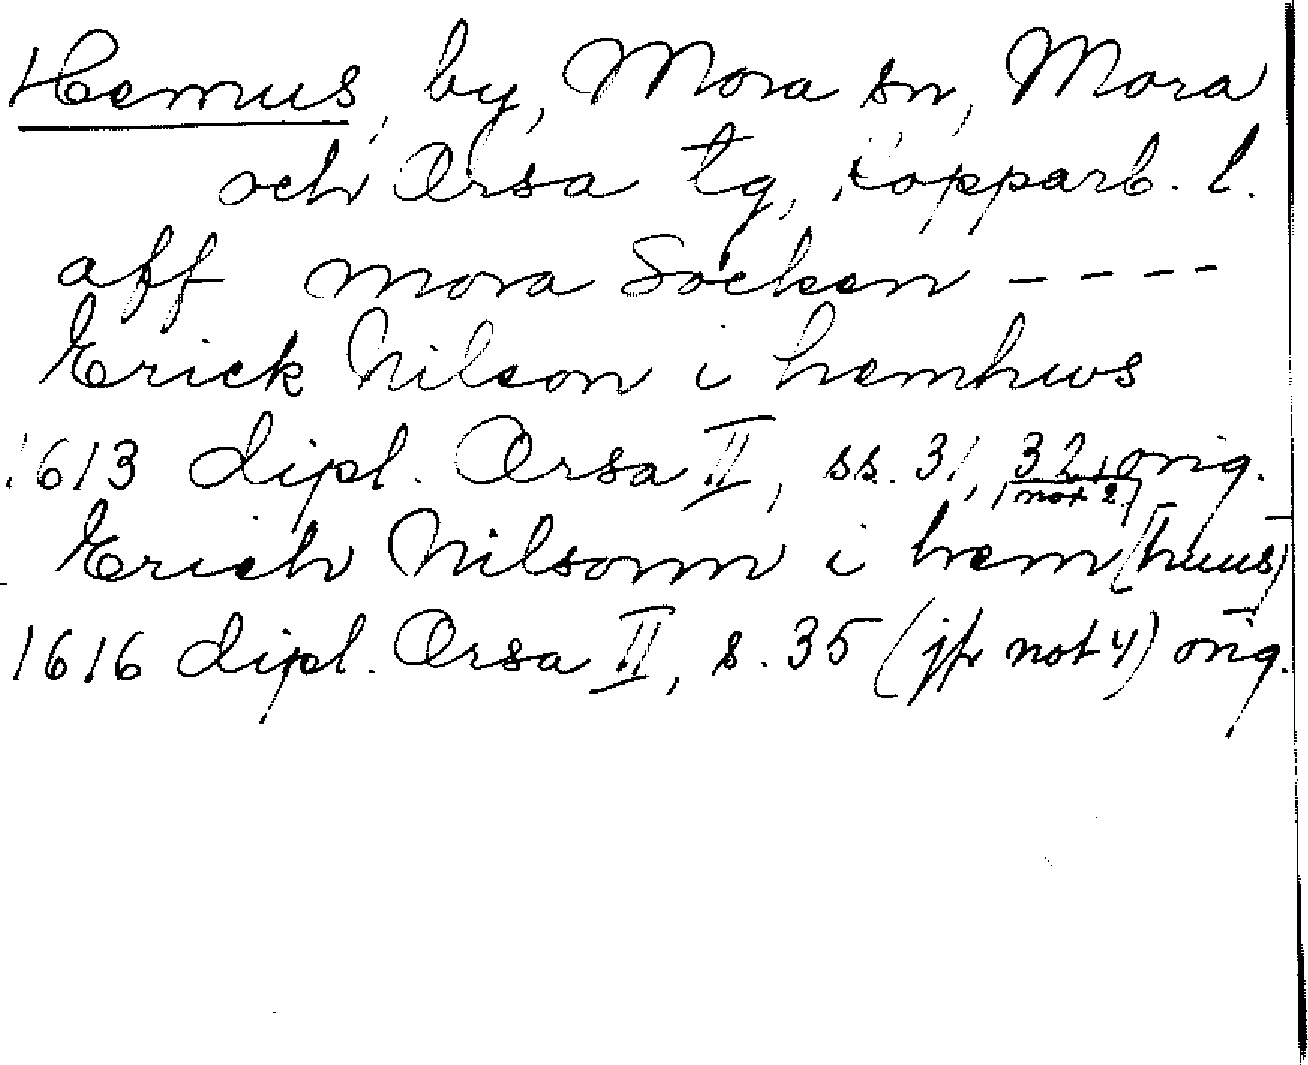 Hemus, by, Mora sn, Mora
och Orsa tg, Kopparb. l.
aff Mora Socken - - - -
Erick Nilson i hemhws
1613 dipl. Orsa II, ss. 31, 32, orig.
(not 2.)
Erich Nilsonn i hem(huus)
1616 dipl. Orsa II, s. 35 (jfr not 4) orig.